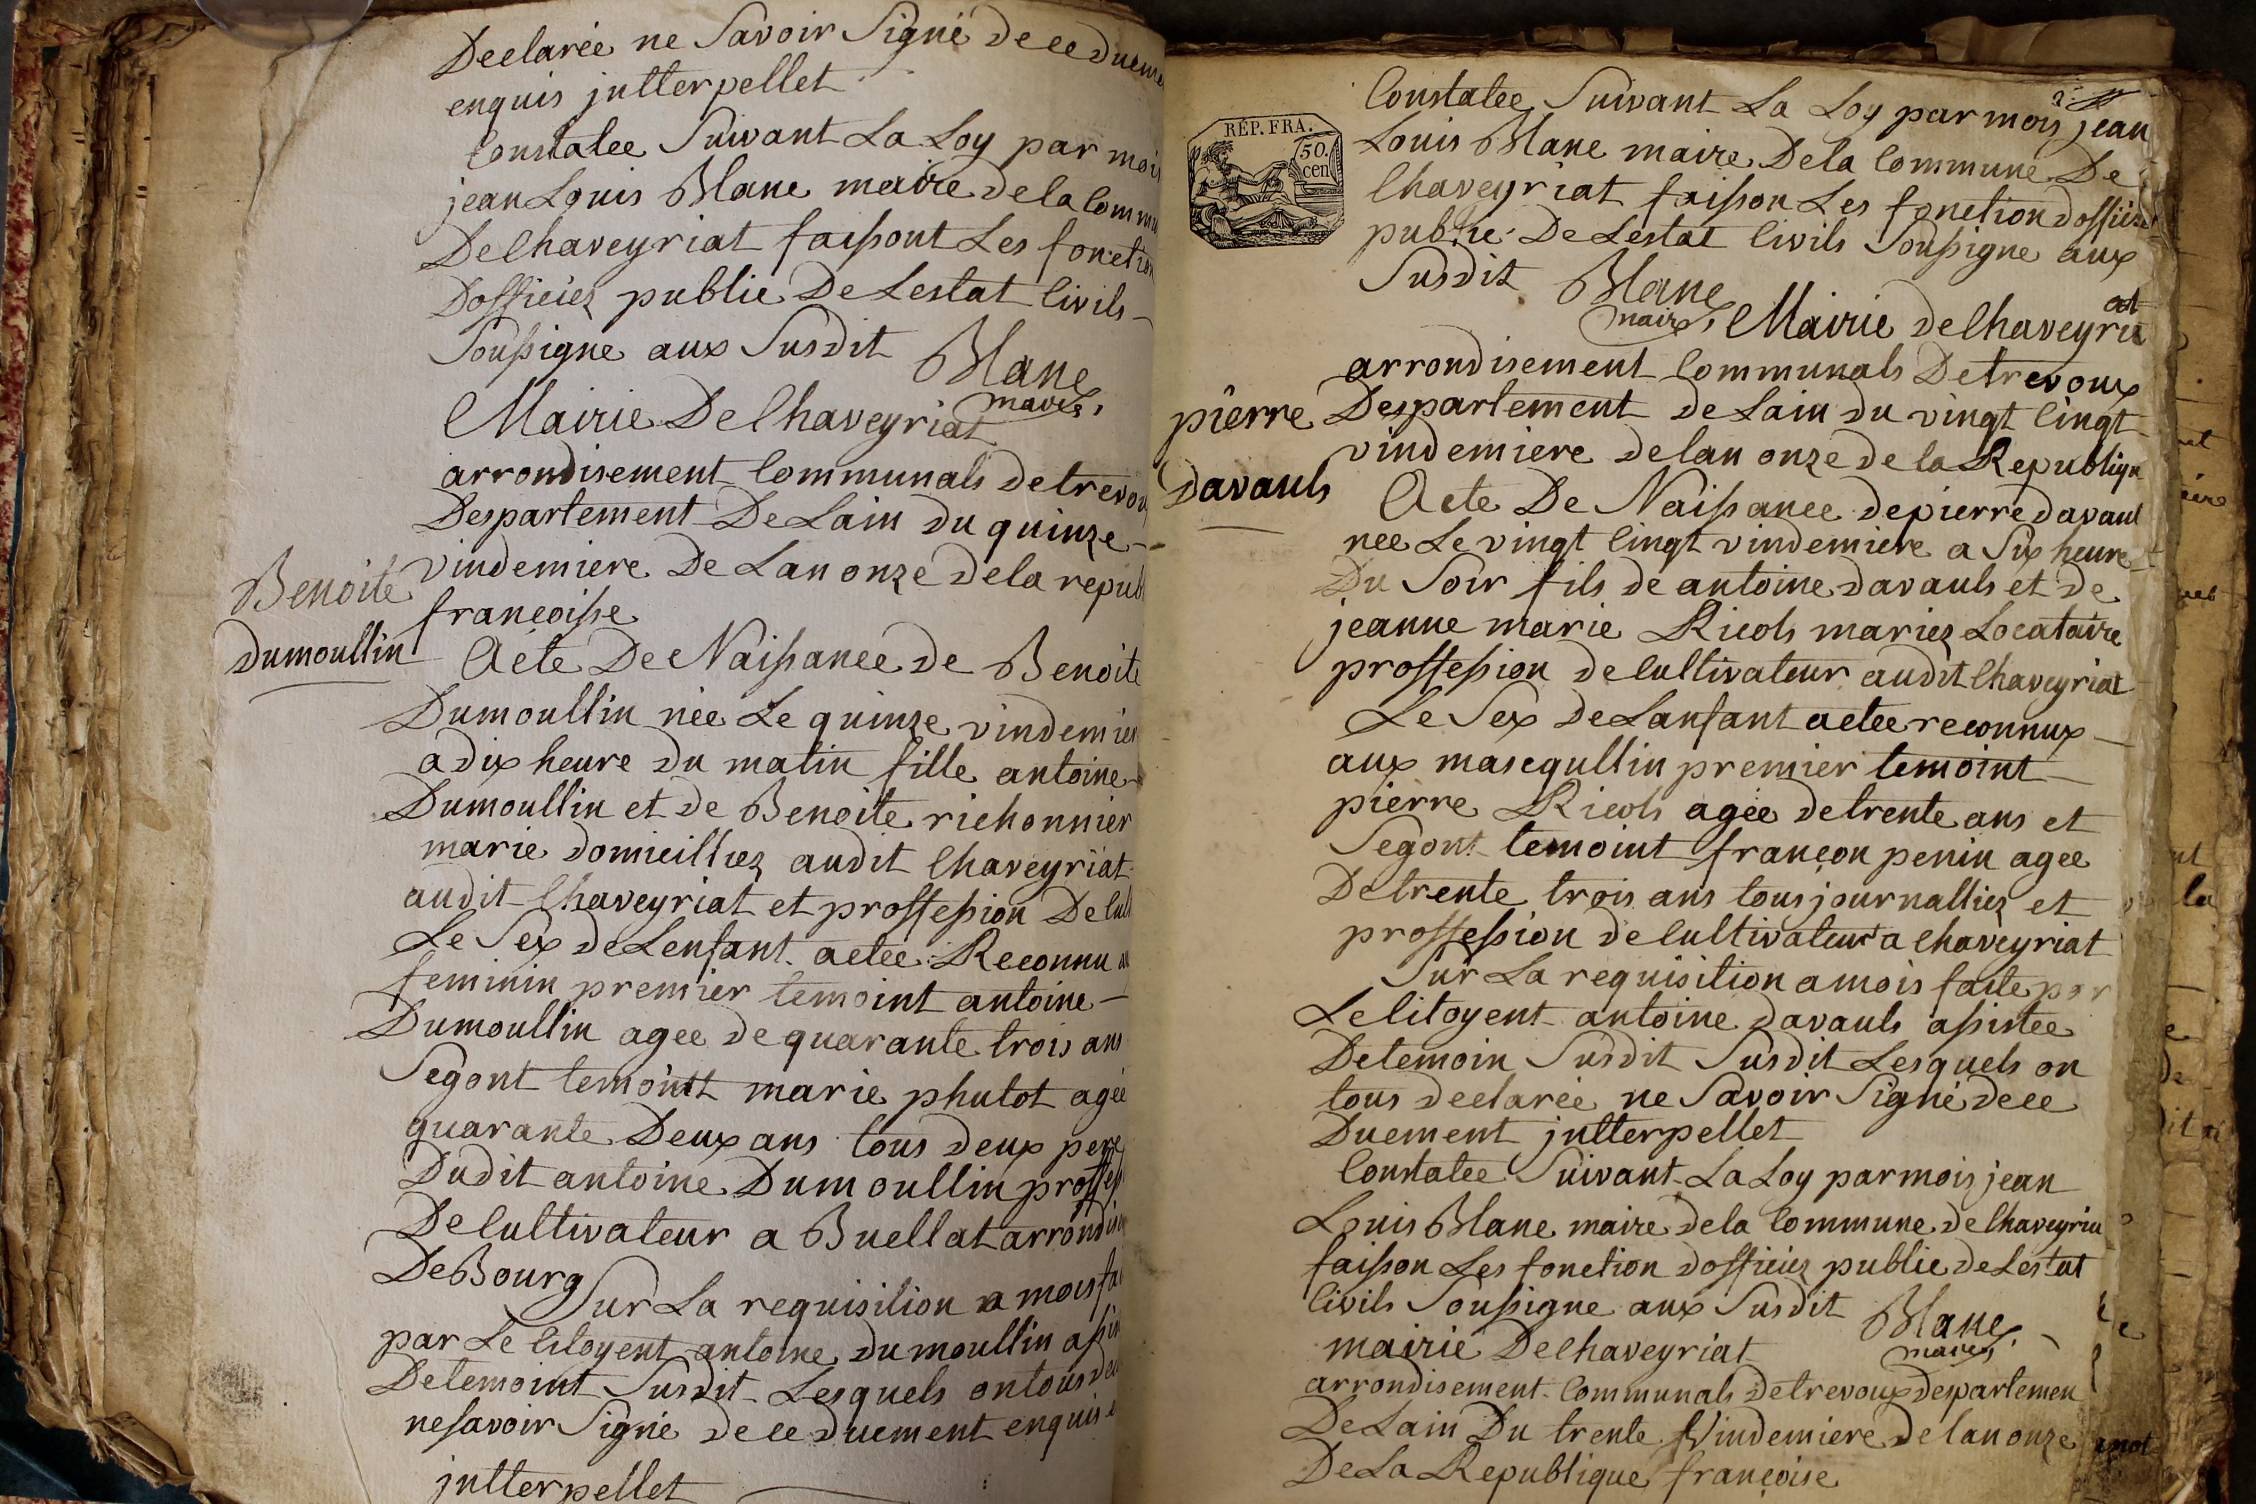 Declarée ne Savoir Signé de ce duem
enquis jntterpellet
Constatee Suivant La Loy par mois
jean Louis Blanc maire de la Commu
De Chaveyriat faissont Les fonction
Dofficiez public De Lestat Civils
Soussigne aux Susdit Blanc
maire
Mairie De Chaveyriat
arrondisement Communals de trevou
Despartement De Lain du quinze
vindemiere De Lan onze de la repub
francoisse
Benoite
Dumoullin
Acte De Naissance de Benoite
Dumoullin née Le quinze vindemier
a dix heure du matin fille antoine
Dumoullin et de Benoite richonnier
marie domicilliez audit Chaveyriat
audit Chaveyriat et proffession De Cult
Le Sex de Lenfant actee Reconnu au
feminin premier temoint antoine
Dumoullin agee de quarante trois ans
Segont temointt marie phutot agée
quarante Deux ans tous deux pere
Dudit antoine Dumoullin proffess
De Cultivateur a Buellat arrondise
De Bourg
Sur La requisition a mois fai
par Le Citoyent antoine dumoullin assis
De temoint Susdit Lesquels on tous dec
ne savoir Signé de ce duement enquis
jntterpellet
RÉP. FRA.
50.
cen
Constatee Suivant La Loy par mois jean
Louis Blanc maire De la Commune De
Chaveyriat faisson Les fonction dofficie
public De Lestat Civils Soussigne aux
Susdit Blanc
maire, Mairie de Chaveyria
at
arrondisement Communals De trevoux
Despartement de Lain du vingt Cingt
vindemiere de lan onze de la Republiqu
pierre
Davauls
Acte De Naissance de pierre davaul
nee Le vingt Cingt vindemiere a Six heure
Du Soir fils de antoine davauls et de
jeanne marie Ricols mariez Locataire
proffession de Cultivateur audit Chaveyriat
Le Sex De Lanfant actee reconnux
aux masequllin premier temoint
pierre Ricols agée de trente ans et
Segont temoint françon penin agee
De trente trois ans tous journalliez et
proffession de Cultivateur a Chaveyriat
Sur La requisition a mois faite par
Le Citoyent antoine davauls assistee
De temoin Susdit Susdit Lesquels on
tous declarée ne Savoir Signé de ce
Duement jntterpellet
Constatee Suivant La Loy par mois jean
Louis Blanc maire de la Commune de Chaveyria
faisson Les fonction dofficiez public de Lestat
Civils Soussigne aux Susdit Blanc
maire
mairie De Chaveyriat
arrondisement Communals de trevoux despartemen
De Lain Du trente Vindemiere de lan onze
De La Republique françoise